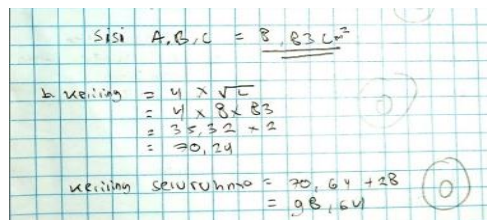 sisi A,B,C = 8,83 cm²
b. keliling = 4 x √L
= 4 x 8 x 83
= 35,32 x 2
= 70,24
keliling seluruhnya = 70,64 + 28
= 98,64
0